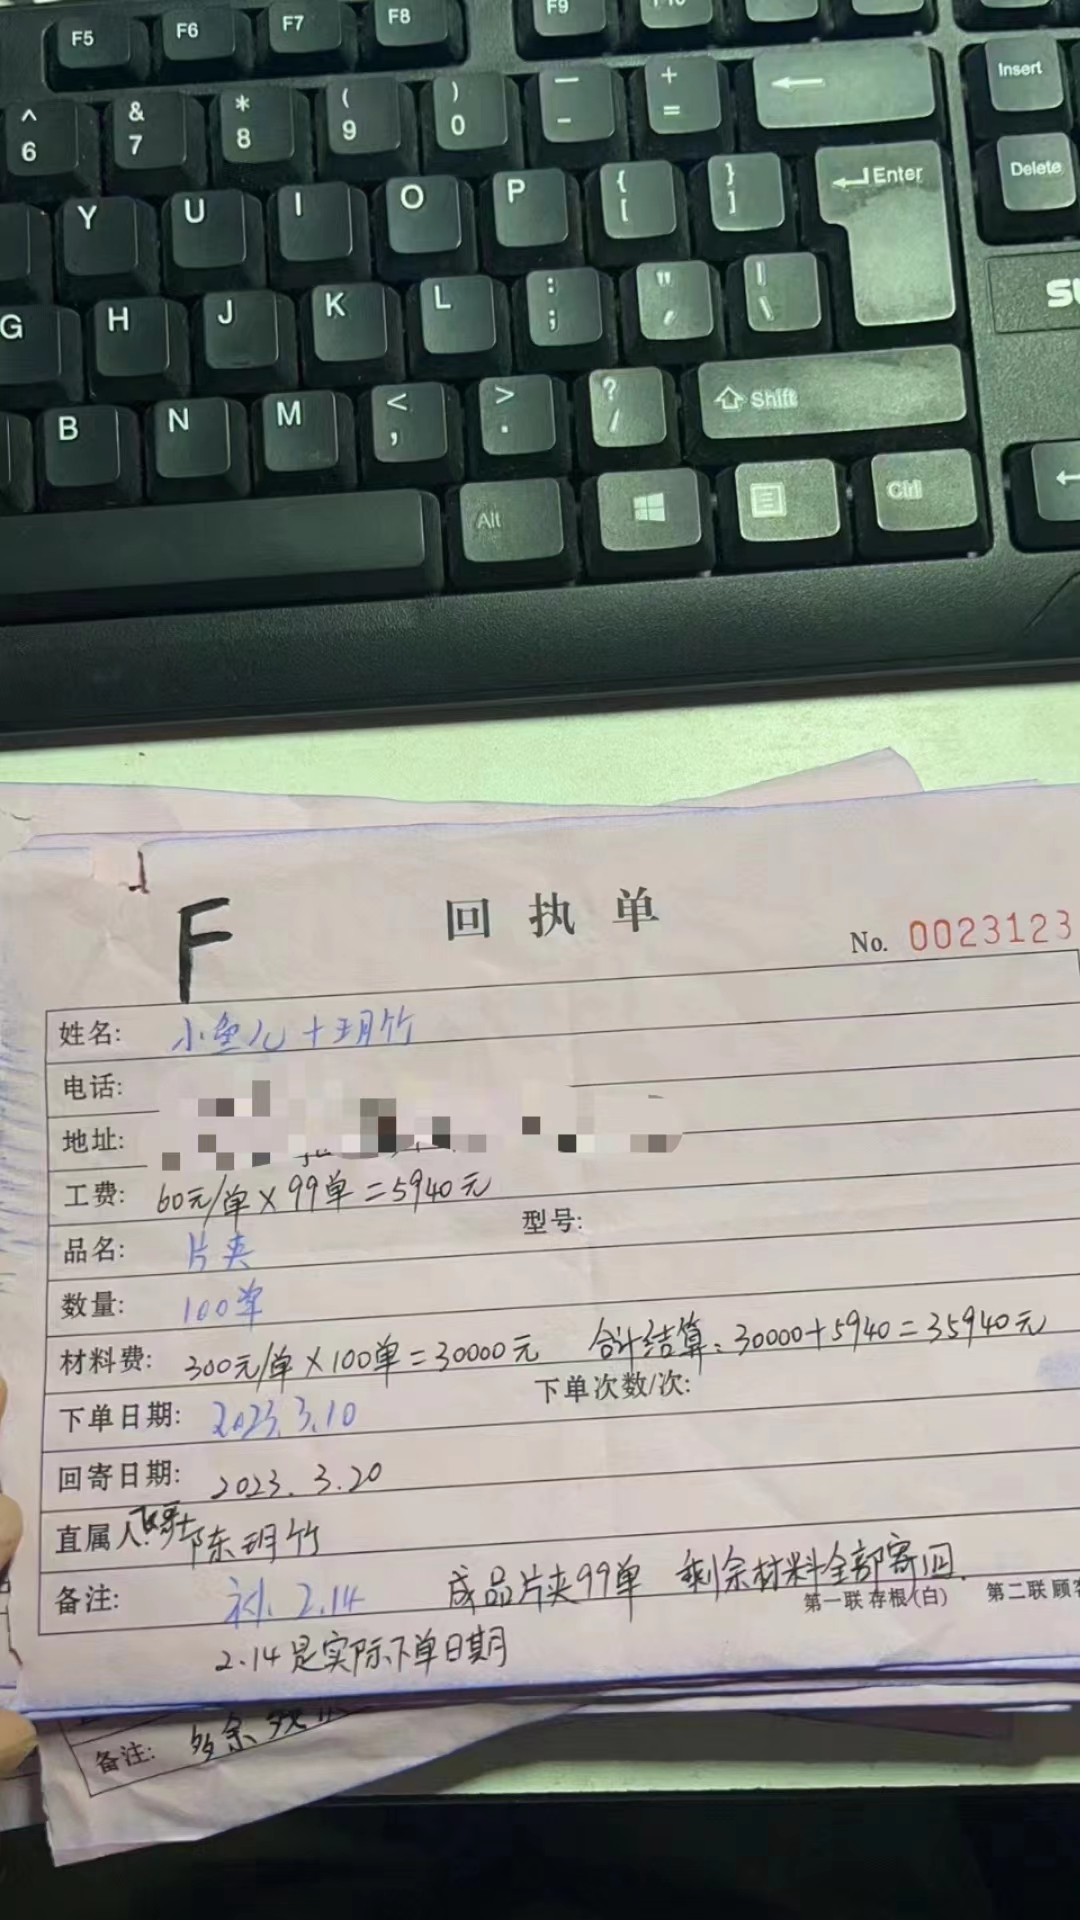 F5 F6 F7 F8 F9
^ 6 & 7 * 8 ( 9 ) 0 — - + = Insert
Y U I O P { [ } ] Enter Delete
G H J K L : ; " , | \
B N M < , > . ? / Shift
Alt Ctrl
F
回执单
No. 0023123
姓名: 小鱼儿+玥竹
电话:
地址:
工费: 60元/单×99单=5940元
型号:
品名: 片夹
数量: 100单
材料费: 300元/单×100单=30000元 合计结算:30000+5940=35940元
下单次数/次:
下单日期: 2023.3.10
回寄日期: 2023.3.20
直属人: 陈玥竹
备注: 补 2.14 成品片夹99单 剩余材料全部寄回.
第一联 存根(白) 第二联
2.14是实际下单日期
备注: 多余